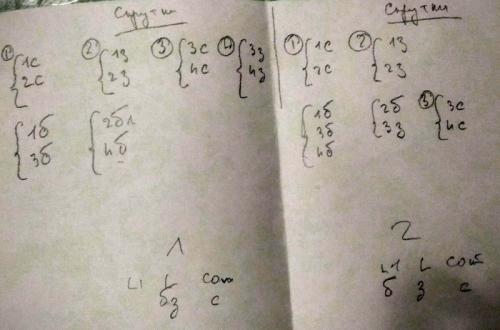 Скрутки
① { 1с 2с ② { 1з 2з ③ { 3с 4с ④ { 3з 4з
{ 1б 3б { 2б1 4б
1
L1 L com
бз с
Скрутки
① { 1с 2с ② { 1з 2з
{ 1б 3б 4б { 2б 3з ③ { 3с 4с
2
L1 L com
б з с